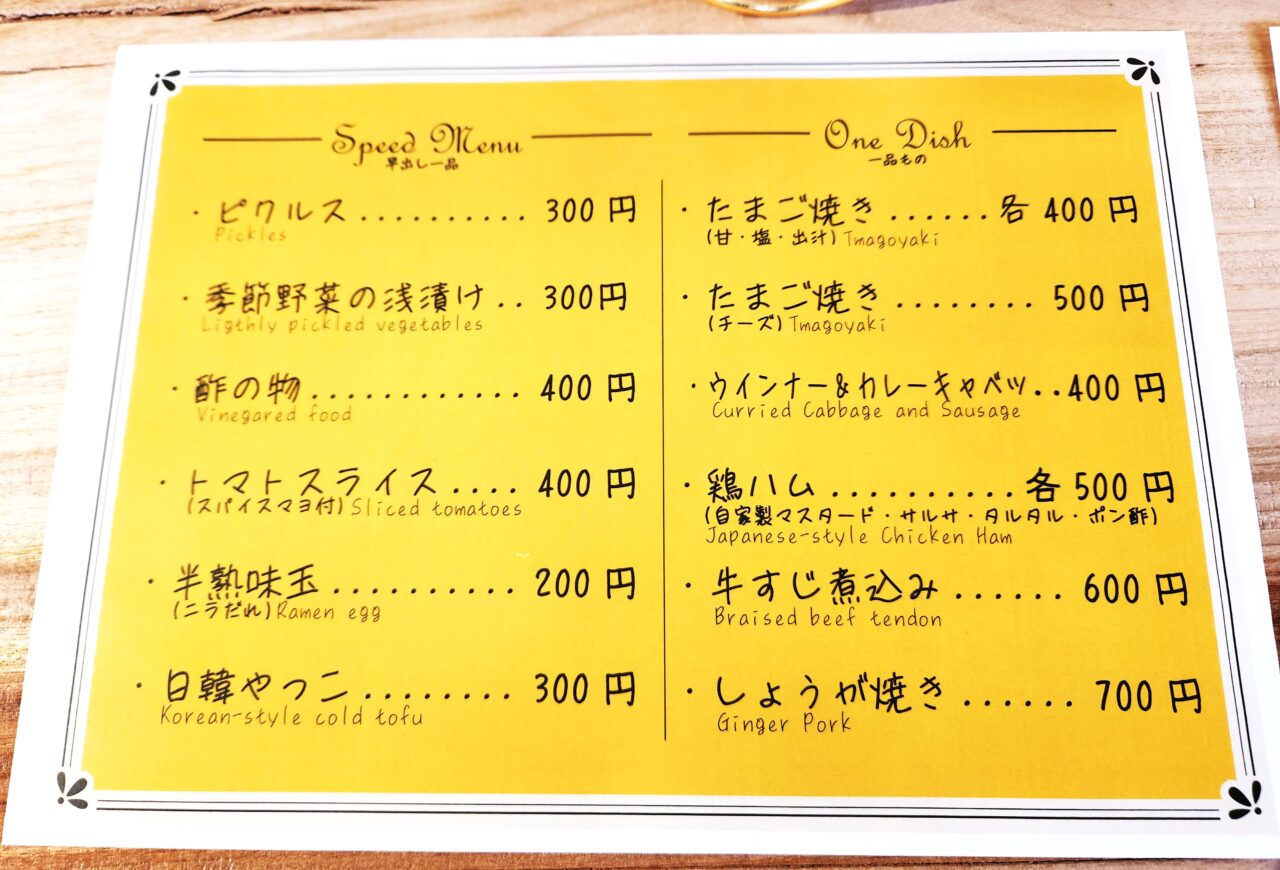 Speed Menu
早出し一品
・ピクルス.......... 300 円
Pickles
・季節野菜の浅漬け.. 300円
Ligthly pickled vegetables
・酢の物............ 400 円
Vinegared food
・トマトスライス.... 400 円
(スパイスマヨ付) Sliced tomatoes
・半熟味玉.......... 200 円
(ニラだれ) Ramen egg
・日韓やっこ......... 300 円
Korean-style cold tofu
One Dish
一品もの
・たまご焼き......各 400 円
(甘・塩・出汁) Tmagoyaki
・たまご焼き........ 500 円
(チーズ) Tmagoyaki
・ウインナー&カレーキャベツ..400 円
Curried Cabbage and Sausage
・鶏ハム..........各 500 円
(自家製マスタード・サルサ・タルタル・ポン酢)
Japanese-style Chicken Ham
・牛すじ煮込み...... 600 円
Braised beef tendon
・しょうが焼き...... 700 円
Ginger Pork